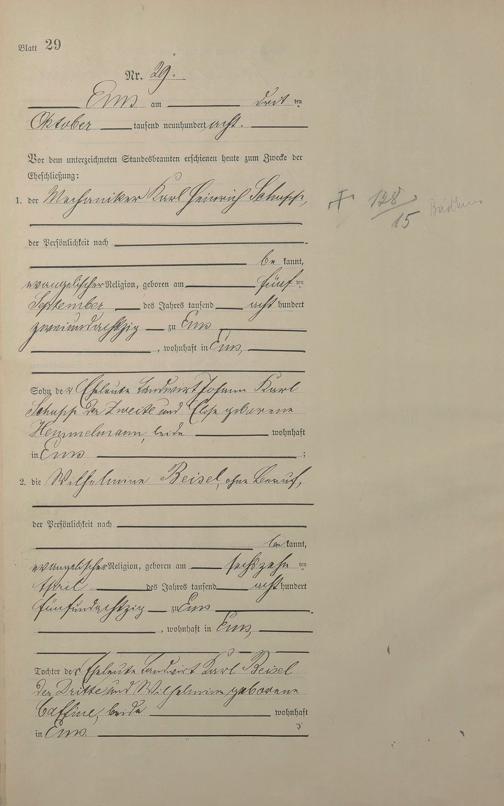 Blatt 29
Nr. 29.
Ems am dritten
Oktober tausend neunhundert acht.
Vor dem unterzeichneten Standesbeamten erschienen heute zum Zwecke der
Eheschließung:
1. der Mechaniker Karl Heinrich
† 128/15
der Persönlichkeit nach
be kannt,
evangelischer Religion, geboren am fünften
September des Jahres tausend acht hundert
zweiundachtzig zu Ems
, wohnhaft in Ems,
Sohn der Eheleute Landwirt Johann Karl
der Zweite und Elise geborene
Hemmelmann, beide wohnhaft
in Ems ;
2. die Wilhelmine Beisel, ohne Beruf,
der Persönlichkeit nach
be kannt,
evangelischer Religion, geboren am sechszehnten
des Jahres tausend acht hundert
fünfundachtzig zu Ems
, wohnhaft in Ems,
Tochter der Eheleute Landwirt Karl Beisel
der Dritte und Wilhelmine geborene
beide wohnhaft
in Ems